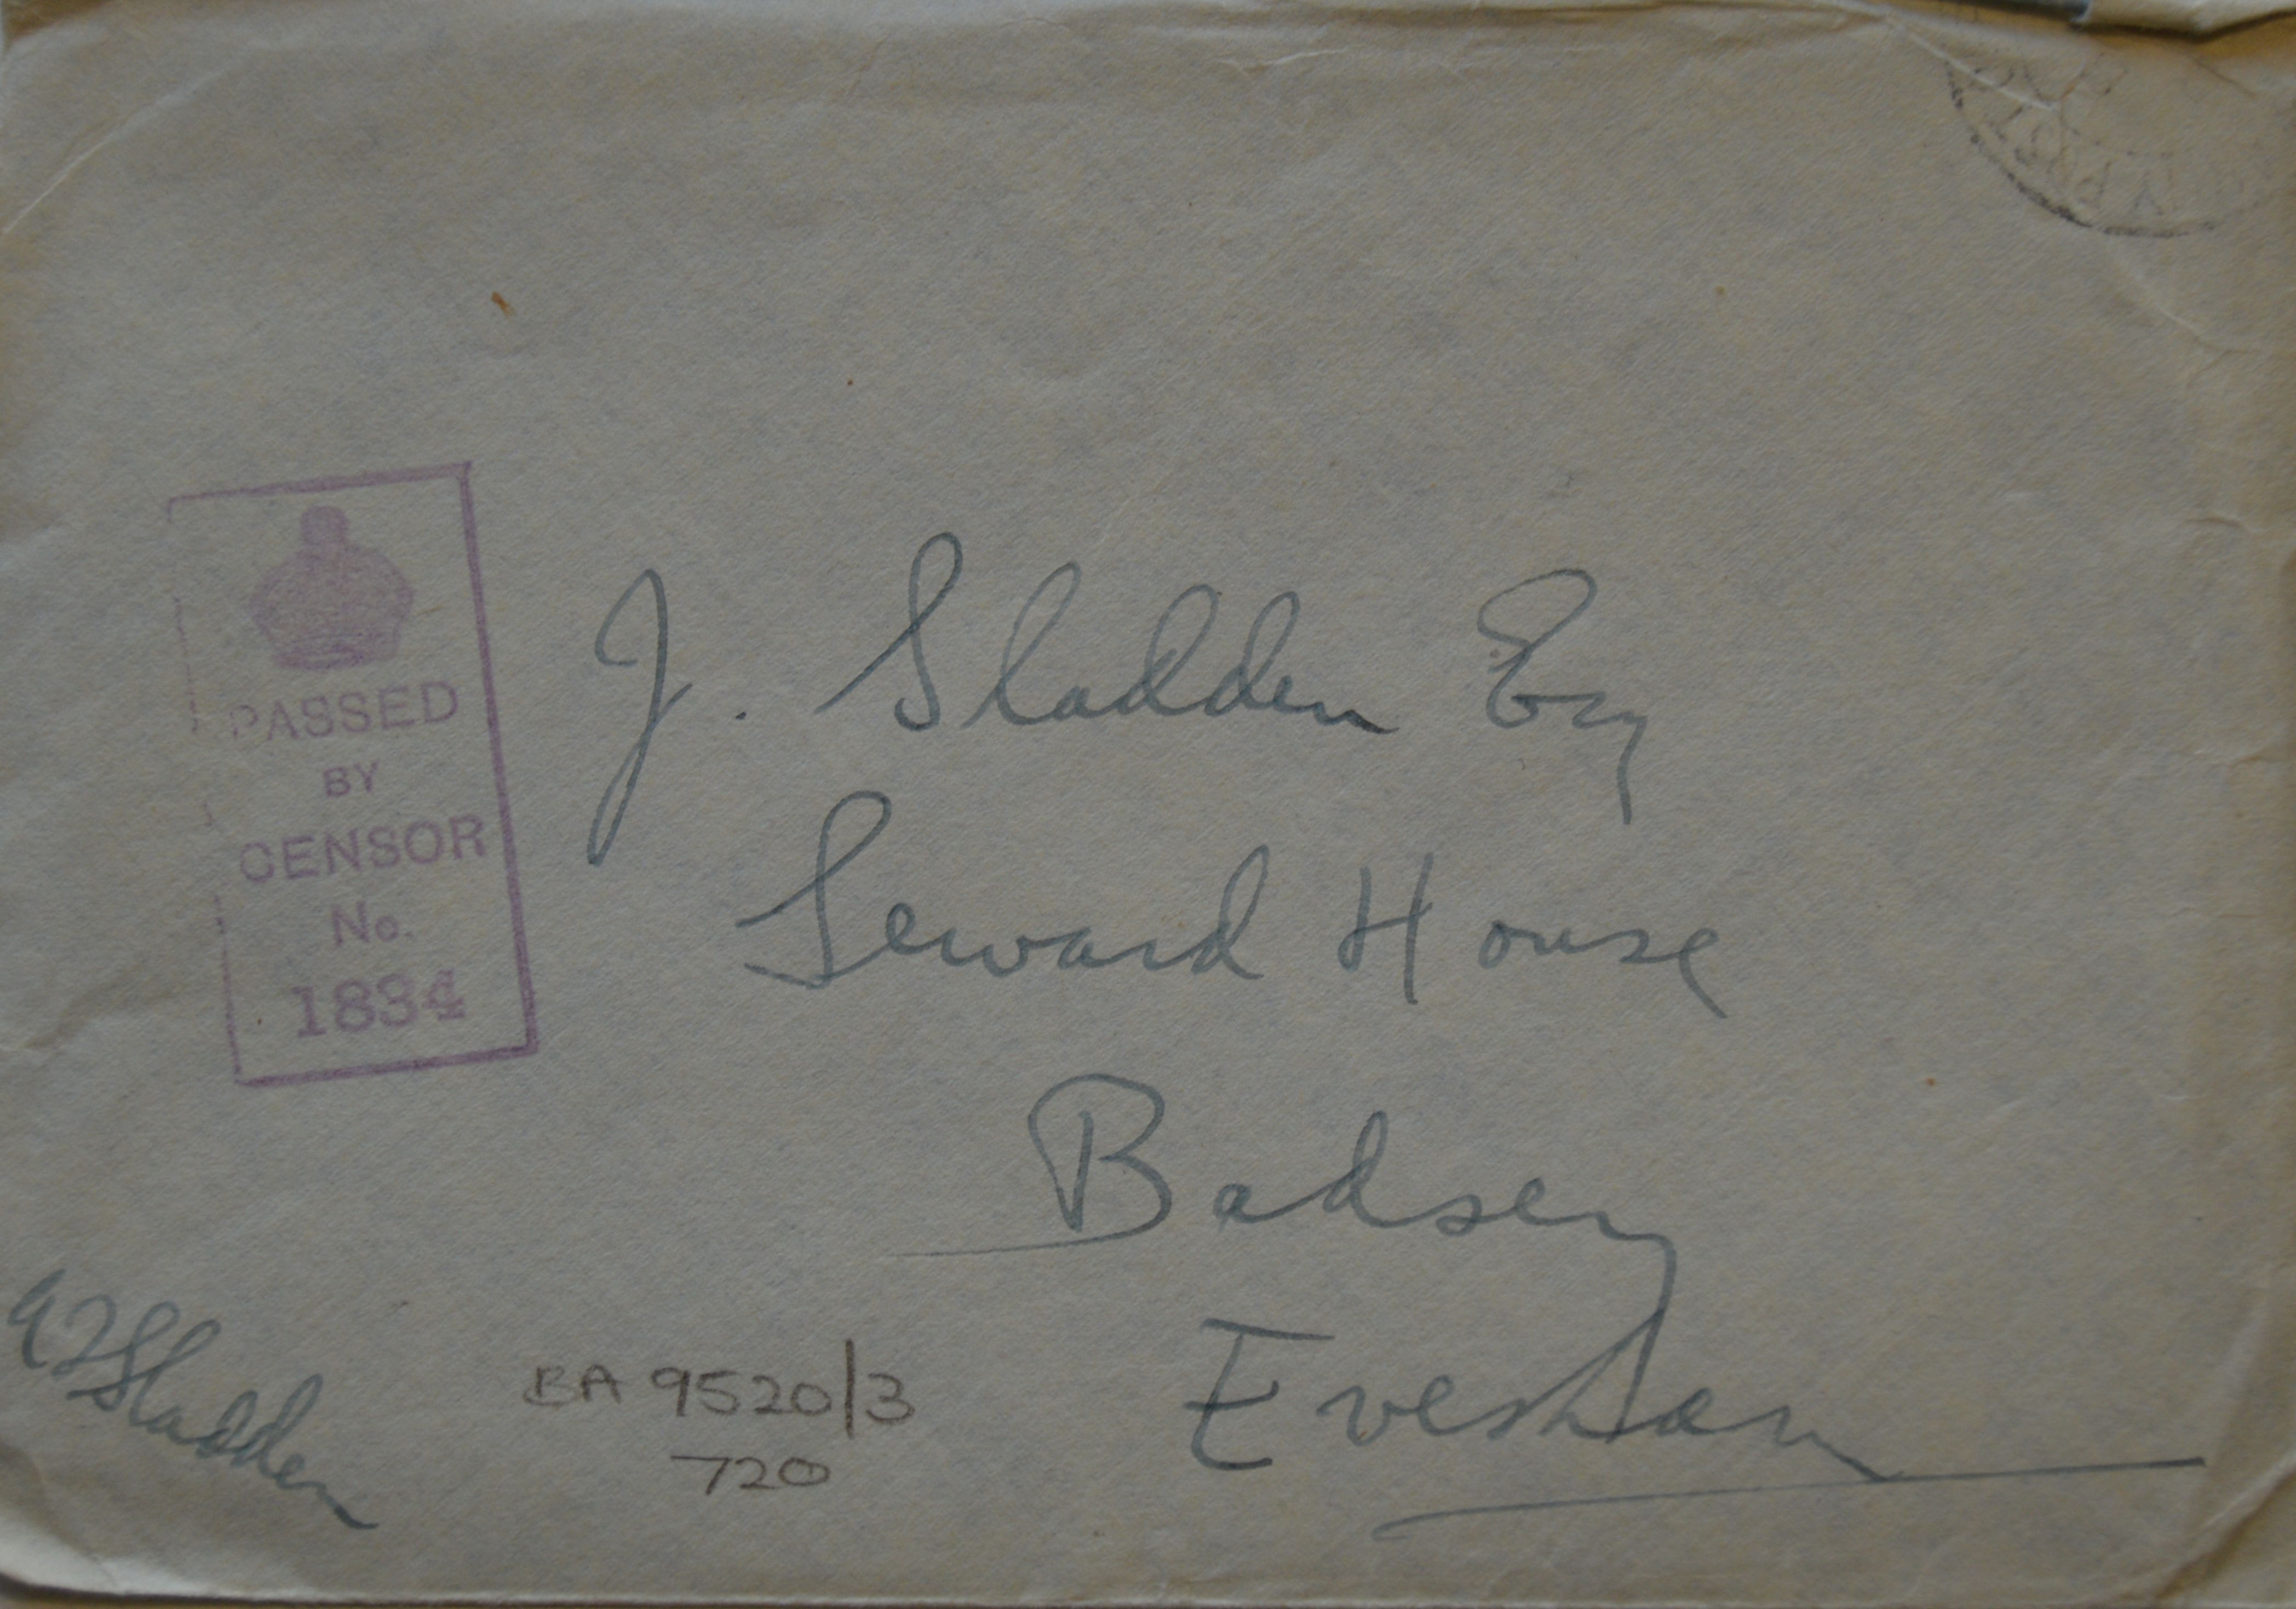 PASSED
BY
CENSOR
No.
1834
J. Sladden Esq
Seward House
Badsey
Evesham
Sladden
BA 9520/3
720